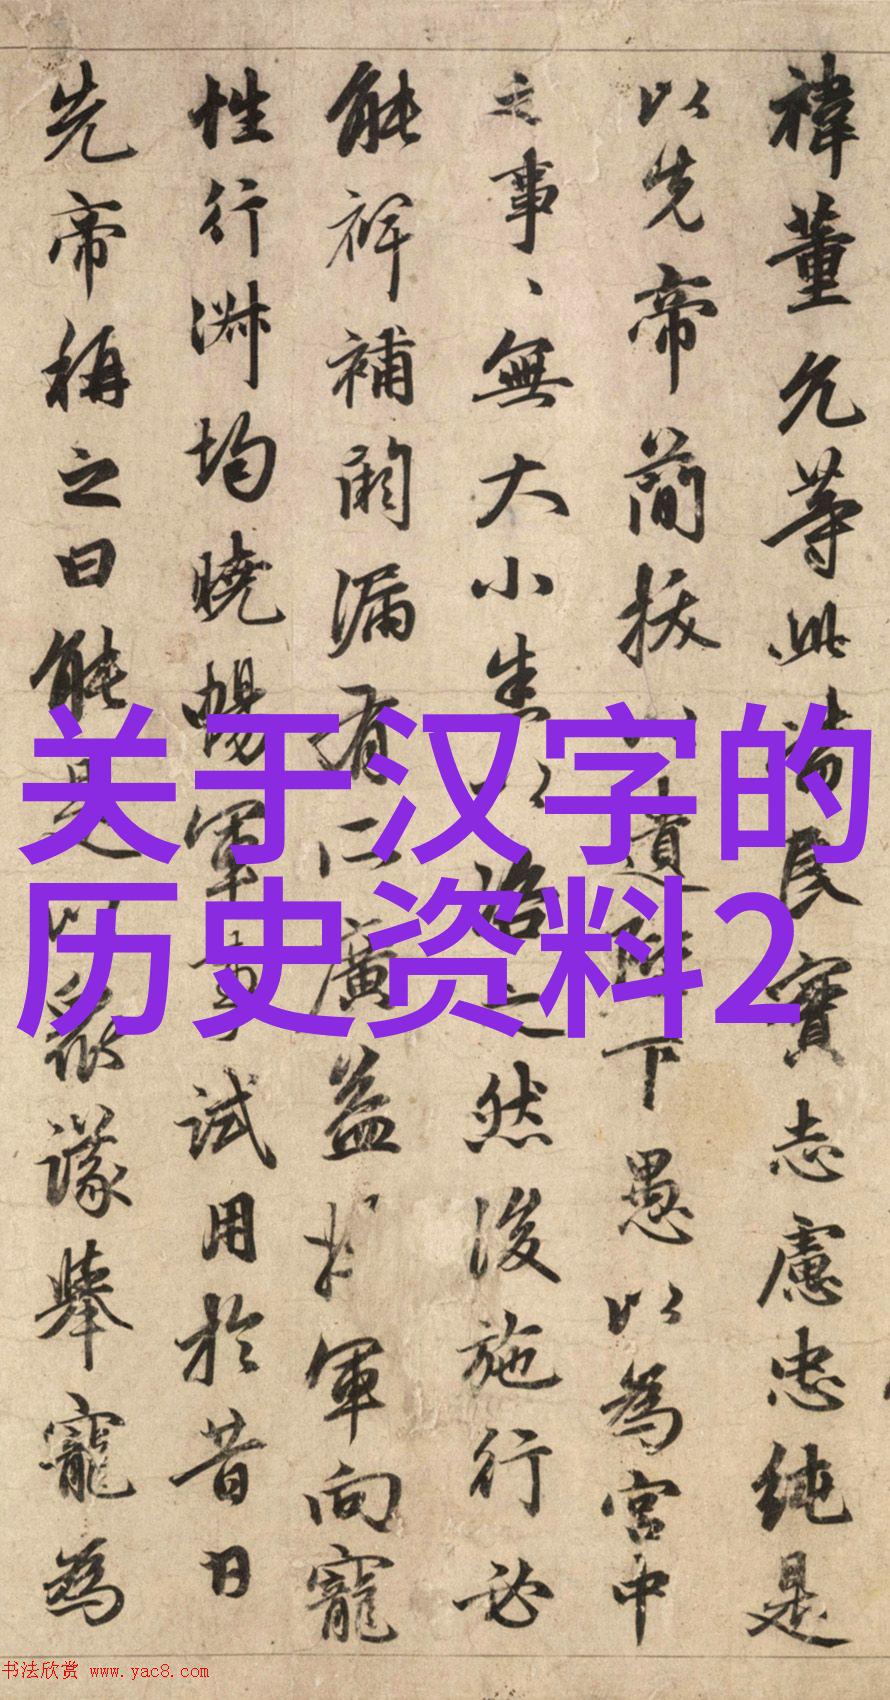 关于汉字的
历史资料2
禕董允等此皆良實志慮忠純是
以先帝簡拔以遺陛下愚以為宮中
之事、無大小悉以咨之然後施行必
能裨補闕漏有所廣益將軍向寵
性行淋均曉暢軍事試用於昔日
先帝稱之曰能是以眾議舉寵為
书法欣赏 www.yac8.com